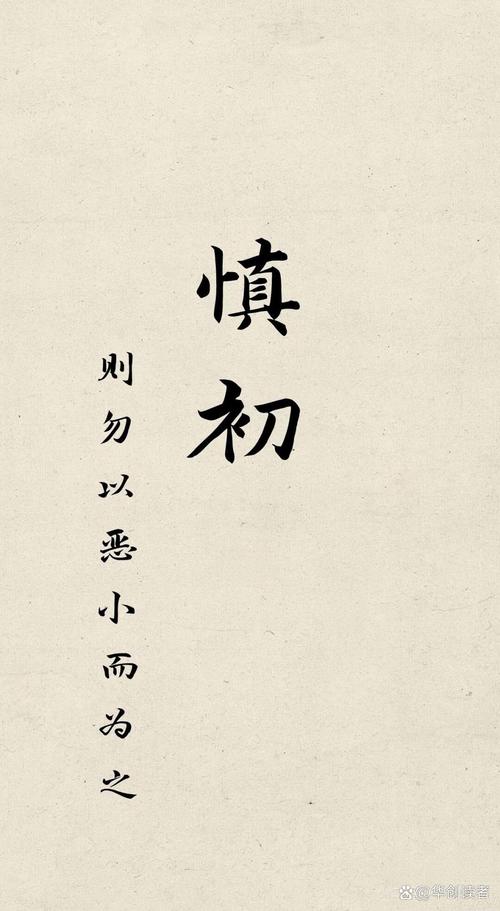 慎初
则勿以恶小而为之
@华创读者